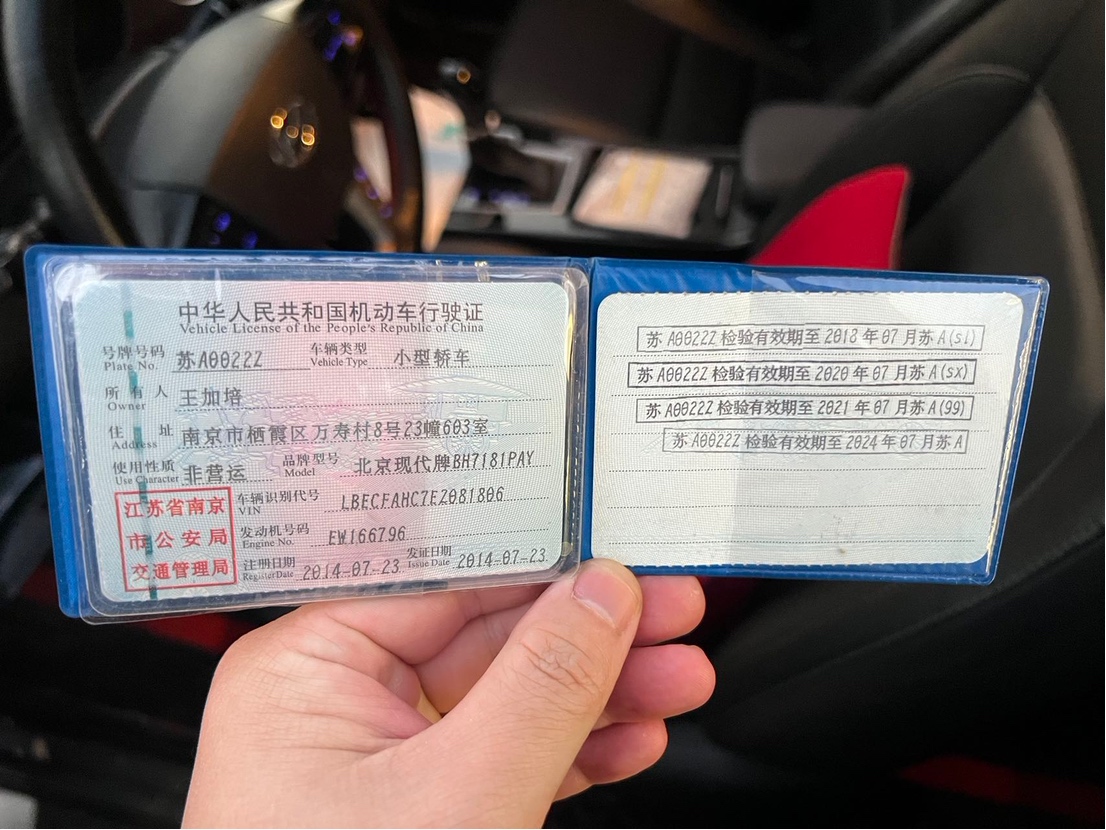 中华人民共和国机动车行驶证
Vehicle License of the People's Republic of China
号牌号码 Plate No. 苏A0022Z 车辆类型 Vehicle Type 小型轿车
所有人 Owner 王加培
住址 Address 南京市栖霞区万寿村8号23幢603室
使用性质 Use Character 非营运 品牌型号 Model 北京现代牌BH7181PAY
车辆识别代号 VIN LBECFAHC7EZ081806
发动机号码 Engine No. EW166796
注册日期 Register Date 2014-07-23 发证日期 Issue Date 2014-07-23
江苏省南京
市公安局
交通管理局
苏A0022Z检验有效期至2018年07月苏A(sl)
苏A0022Z检验有效期至2020年07月苏A(sx)
苏A0022Z检验有效期至2021年07月苏A(99)
苏A0022Z检验有效期至2024年07月苏A